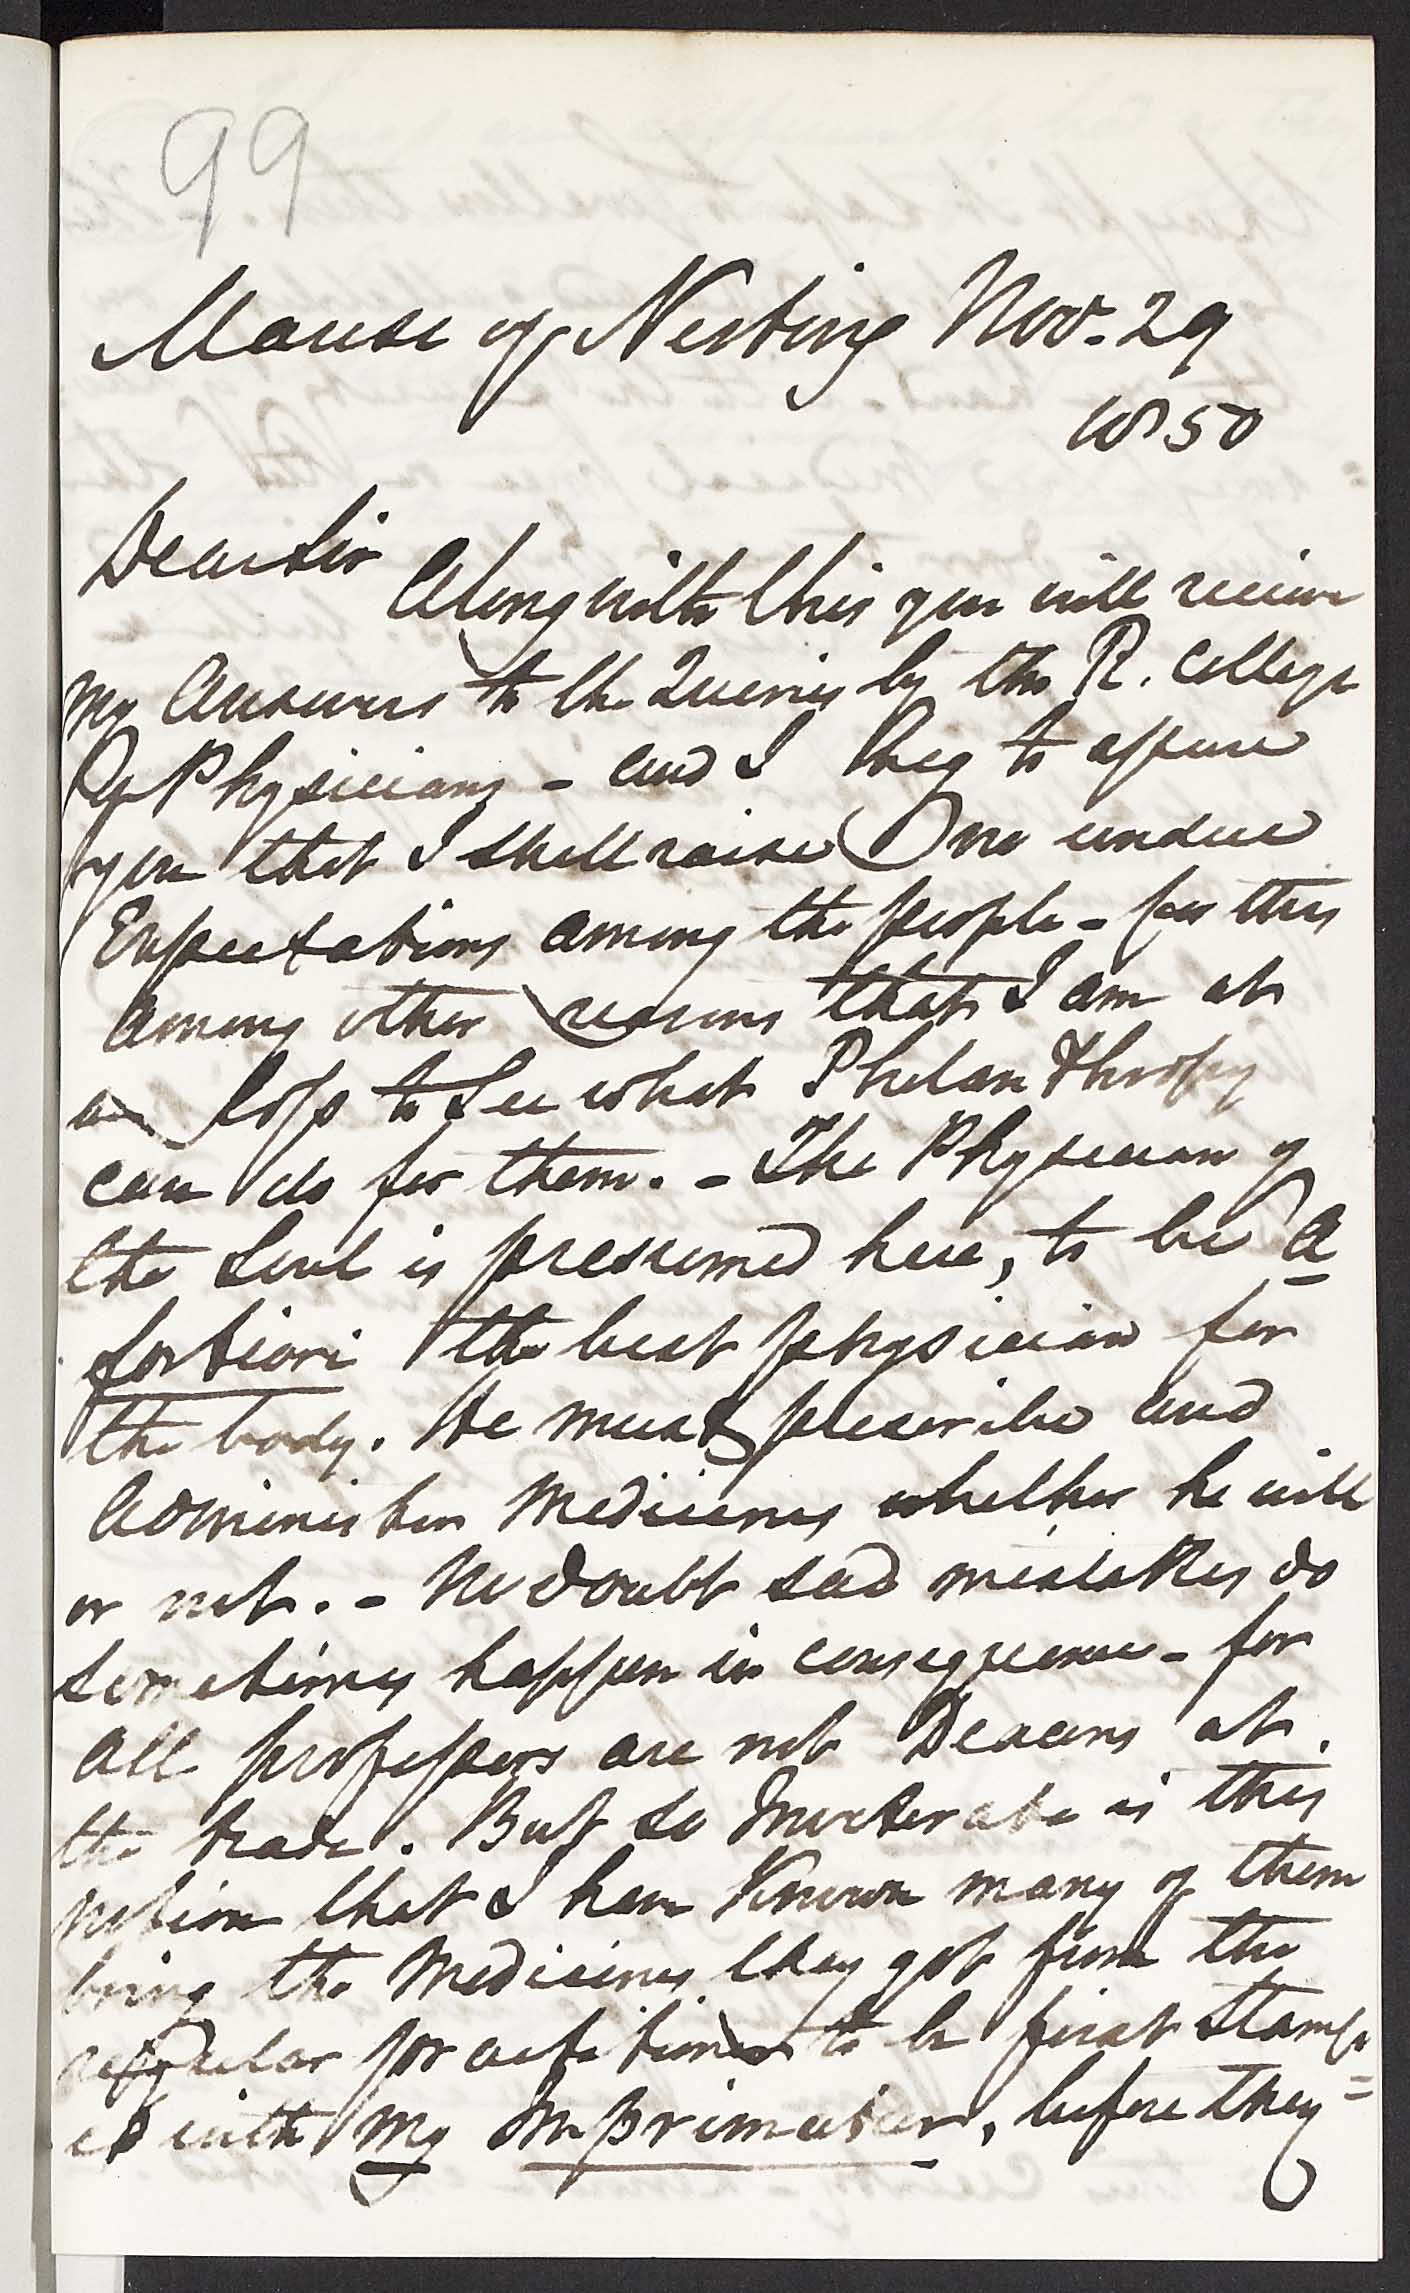 99
Manse of Nesting Nov. 29
1850
Dear Sir
Along with this you will receive
my answers to the Queries by the R. College
Of Physicians - and I beg to assure
you that I shall raise no undue
Expectations among the people - for this
among other reasons that I am at
a loss to See what Phelanthropy
can do for them. - The Physician of
the Soul is presumed here, to be a
fortiori the best physician for
the body. He must prescribe and
administer Medicines whether he will
or not. - No doubt sad mistakes do
sometimes happen in consequence - for
all professors are not Deacons at
the trade. But so Inveterate is this
notion that I have Known many of them
bring the Medicines they got from the
regular practitioner to be first Stamp=
ed with my Imprimatur, before they